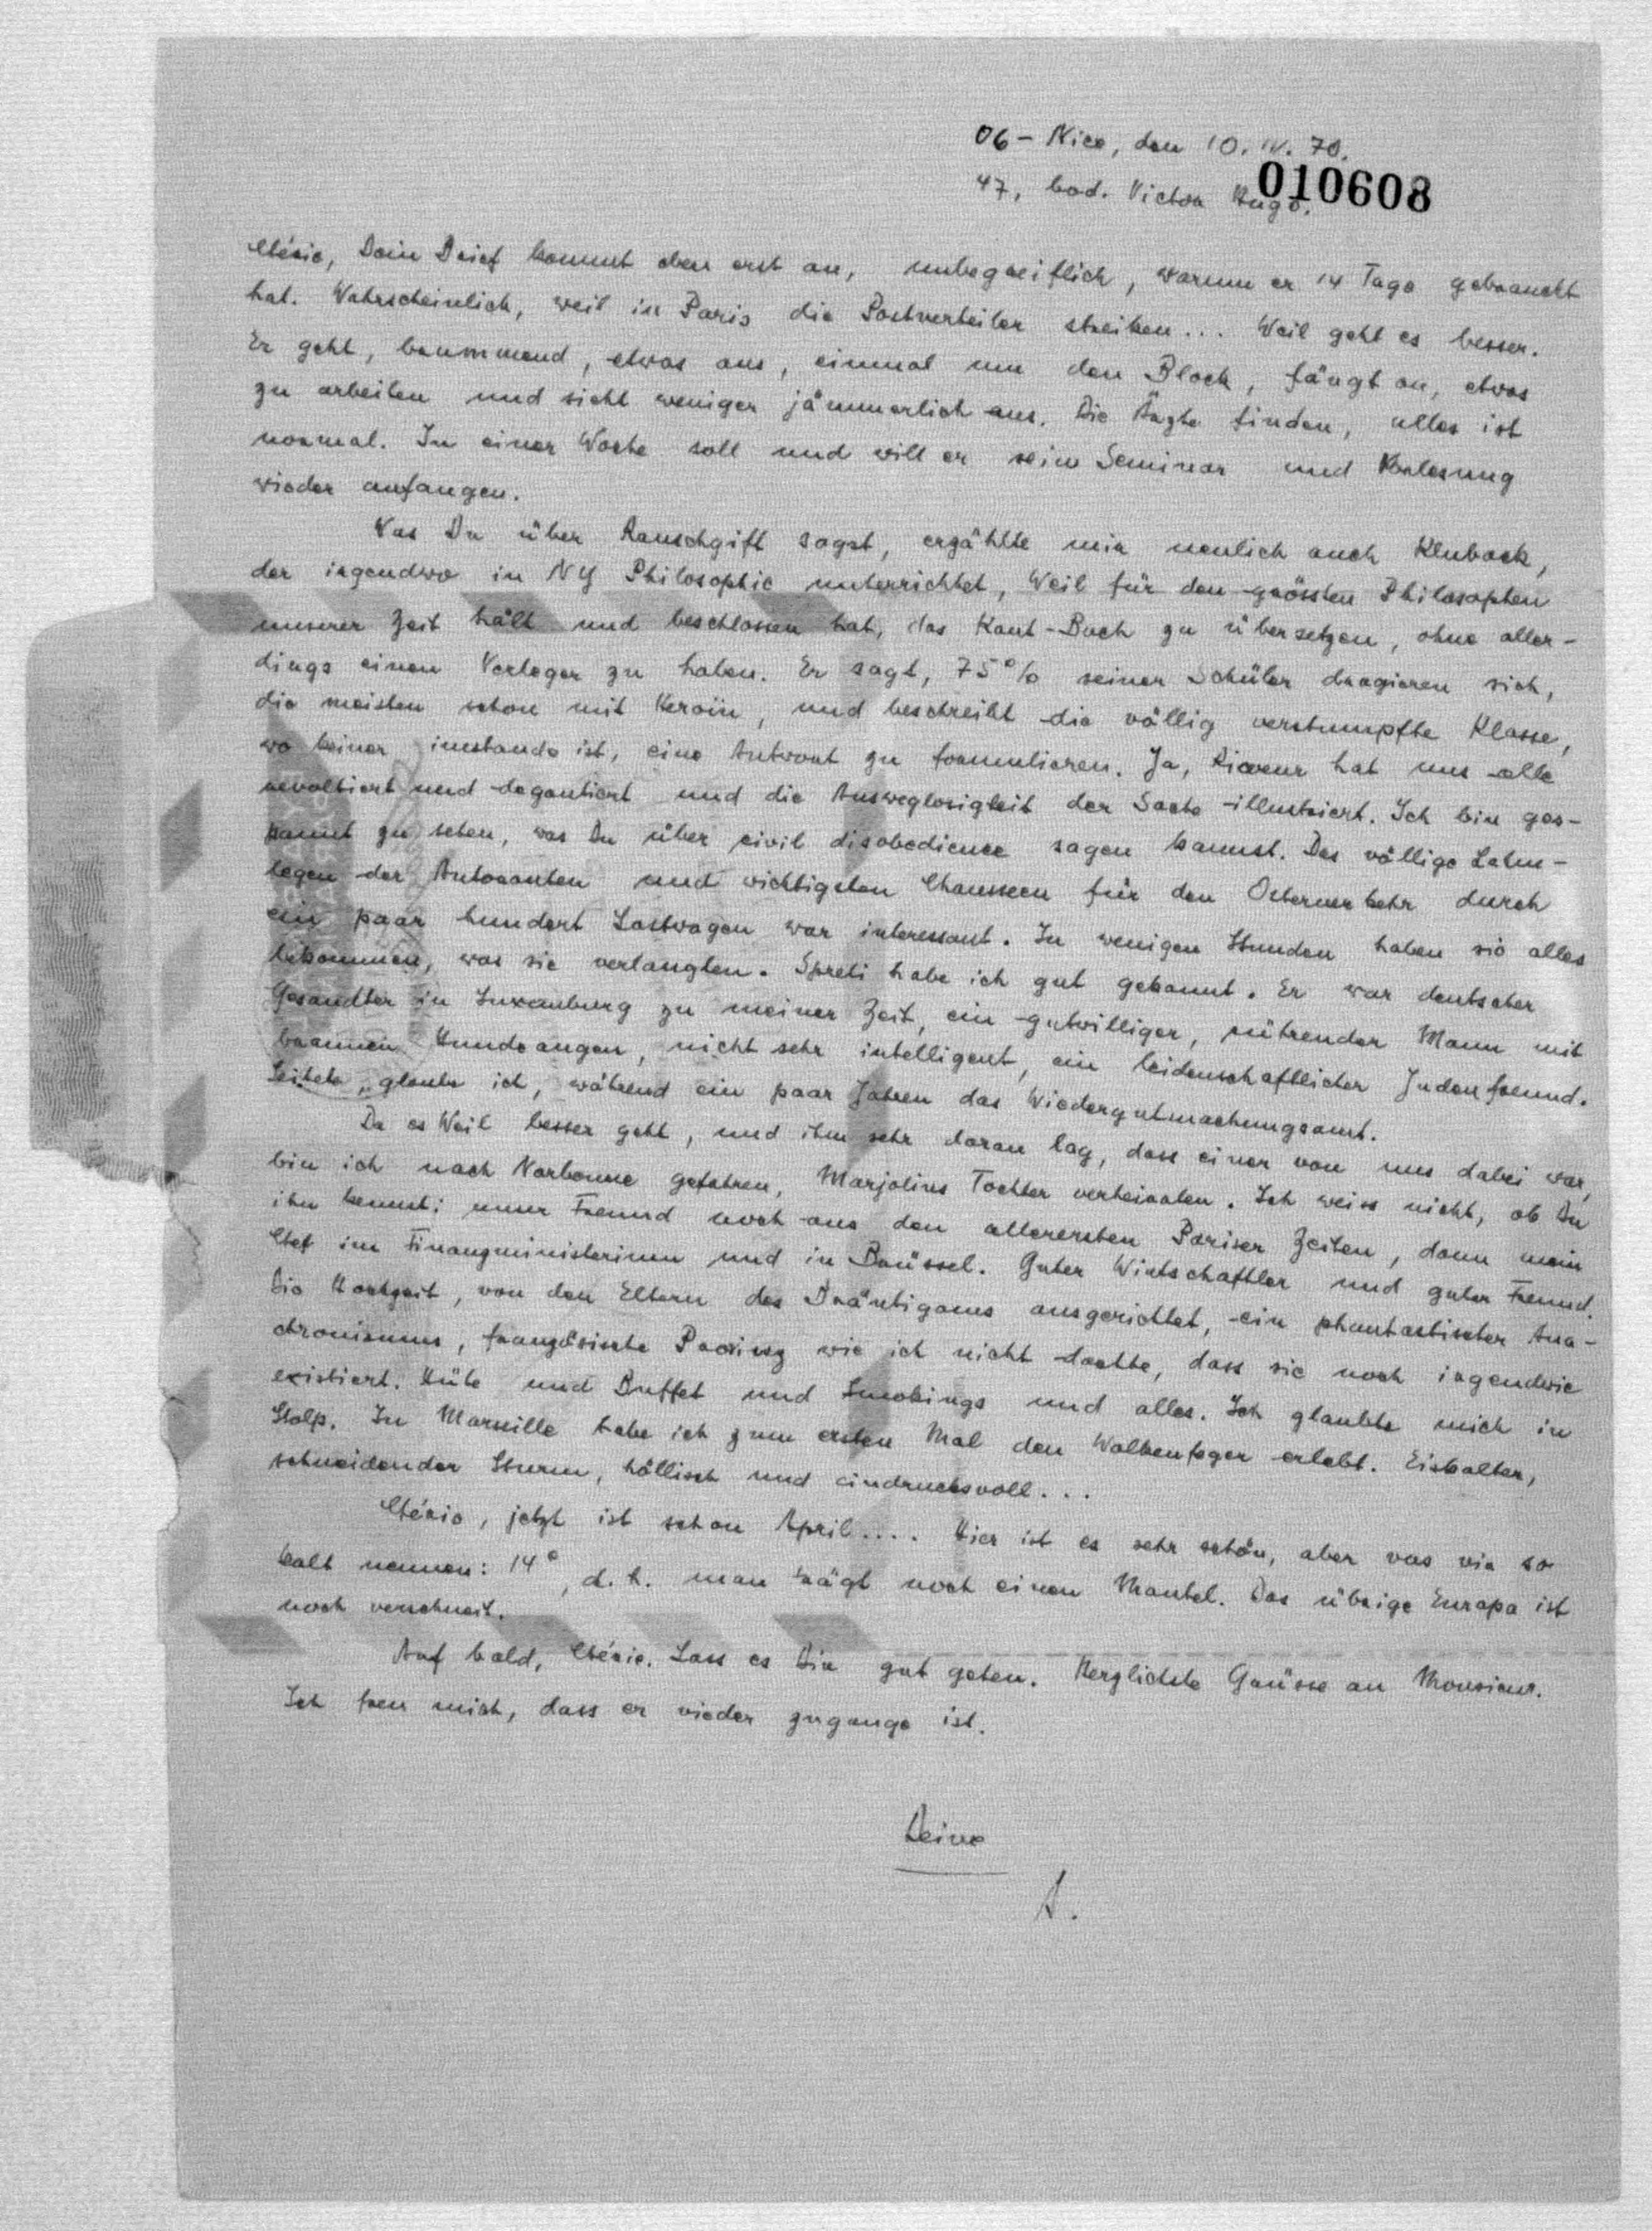 06 - Nice, den 10. IV. 70.
47, bod. Victor Hugo.
010608
Chérie, Dein Brief kommt eben erst an, unbegreiflich, warum er 14 Tage gebraucht
hat. Wahrscheinlich, weil in Paris die Postverteiler streiken... Weil geht es besser.
Er geht, brummend, etwas aus, einmal um den Block, fängt an, etwas
zu arbeiten und sieht weniger jämmerlich aus. Die Ärzte finden, alles ist
normal. In einer Woche soll und will er sein Seminar und Vorlesung
wieder anfangen.
Was Du über Rauschgift sagst, erzählte mir neulich auch Kluback,
der irgendwo in NY Philosophie unterrichtet, Weil für den grössten Philosophen
unserer Zeit hält und beschlossen hat, das Kant-Buch zu übersetzen, ohne aller-
dings einen Verleger zu haben. Er sagt, 75% seiner Schüler drogieren sich,
die meisten schon mit Heroïn, und beschreibt die völlig verstumpfte Klasse,
wo keiner imstande ist, eine Antwort zu formulieren. Ja, Ricoeur hat uns alle
revoltiert und degoutiert und die Ausweglosigkeit der Sache illustriert. Ich bin ges-
pannt zu sehen, was Du über civil disobedience sagen kannst. Das völlige Lahm-
legen der Autorouten und wichtigsten Chausseen für den Osterverkehr durch
ein paar hundert Lastwagen war interessant. In wenigen Stunden haben sie alles
bekommen, was sie verlangten. Spreti habe ich gut gekannt. Er war deutscher
Gesandter in Luxemburg zu meiner Zeit, ein gutwilliger, rührender Mann mit
braunen Hundeaugen, nicht sehr intelligent, ein leidenschaftlicher Judenfreund.
Leitete, glaube ich, während ein paar Jahren das Wiedergutmachungsamt.
Da es Weil besser geht, und ihm sehr daran lag, dass einer von uns dabei war,
bin ich nach Narbonne gefahren, Marjolins Tochter verheiraten. Ich weiss nicht, ob Du
ihn kennst; unser Freund noch aus den allerersten Pariser Zeiten, dann mein
Chef im Finanzministerium und in Brüssel. Guter Wirtschaftler und guter Freund.
Die Hochzeit, von den Eltern des Bräutigams ausgerichtet, ein phantastischer Ana-
chronismus, französische Provinz wie ich nicht dachte, dass sie noch irgendwie
existiert. Hüte und Buffet und Smokings und alles. Ich glaubte mich in
Stolp. In Marseille habe ich zum ersten Mal den Wolkenfeger erlebt. Eiskalter,
schneidender Sturm, höllisch und eindrucksvoll...
Chérie, jetzt ist schon April.... Hier ist es sehr schön, aber was wir so
kalt nennen: 14°, d.h. man trägt noch einen Mantel. Das übrige Europa ist
noch verschneit.
Auf bald, Chérie. Lass es Dir gut gehen. Herzlichste Grüsse an Monsieur.
Ich freu mich, dass er wieder zugange ist.
Deine
A.